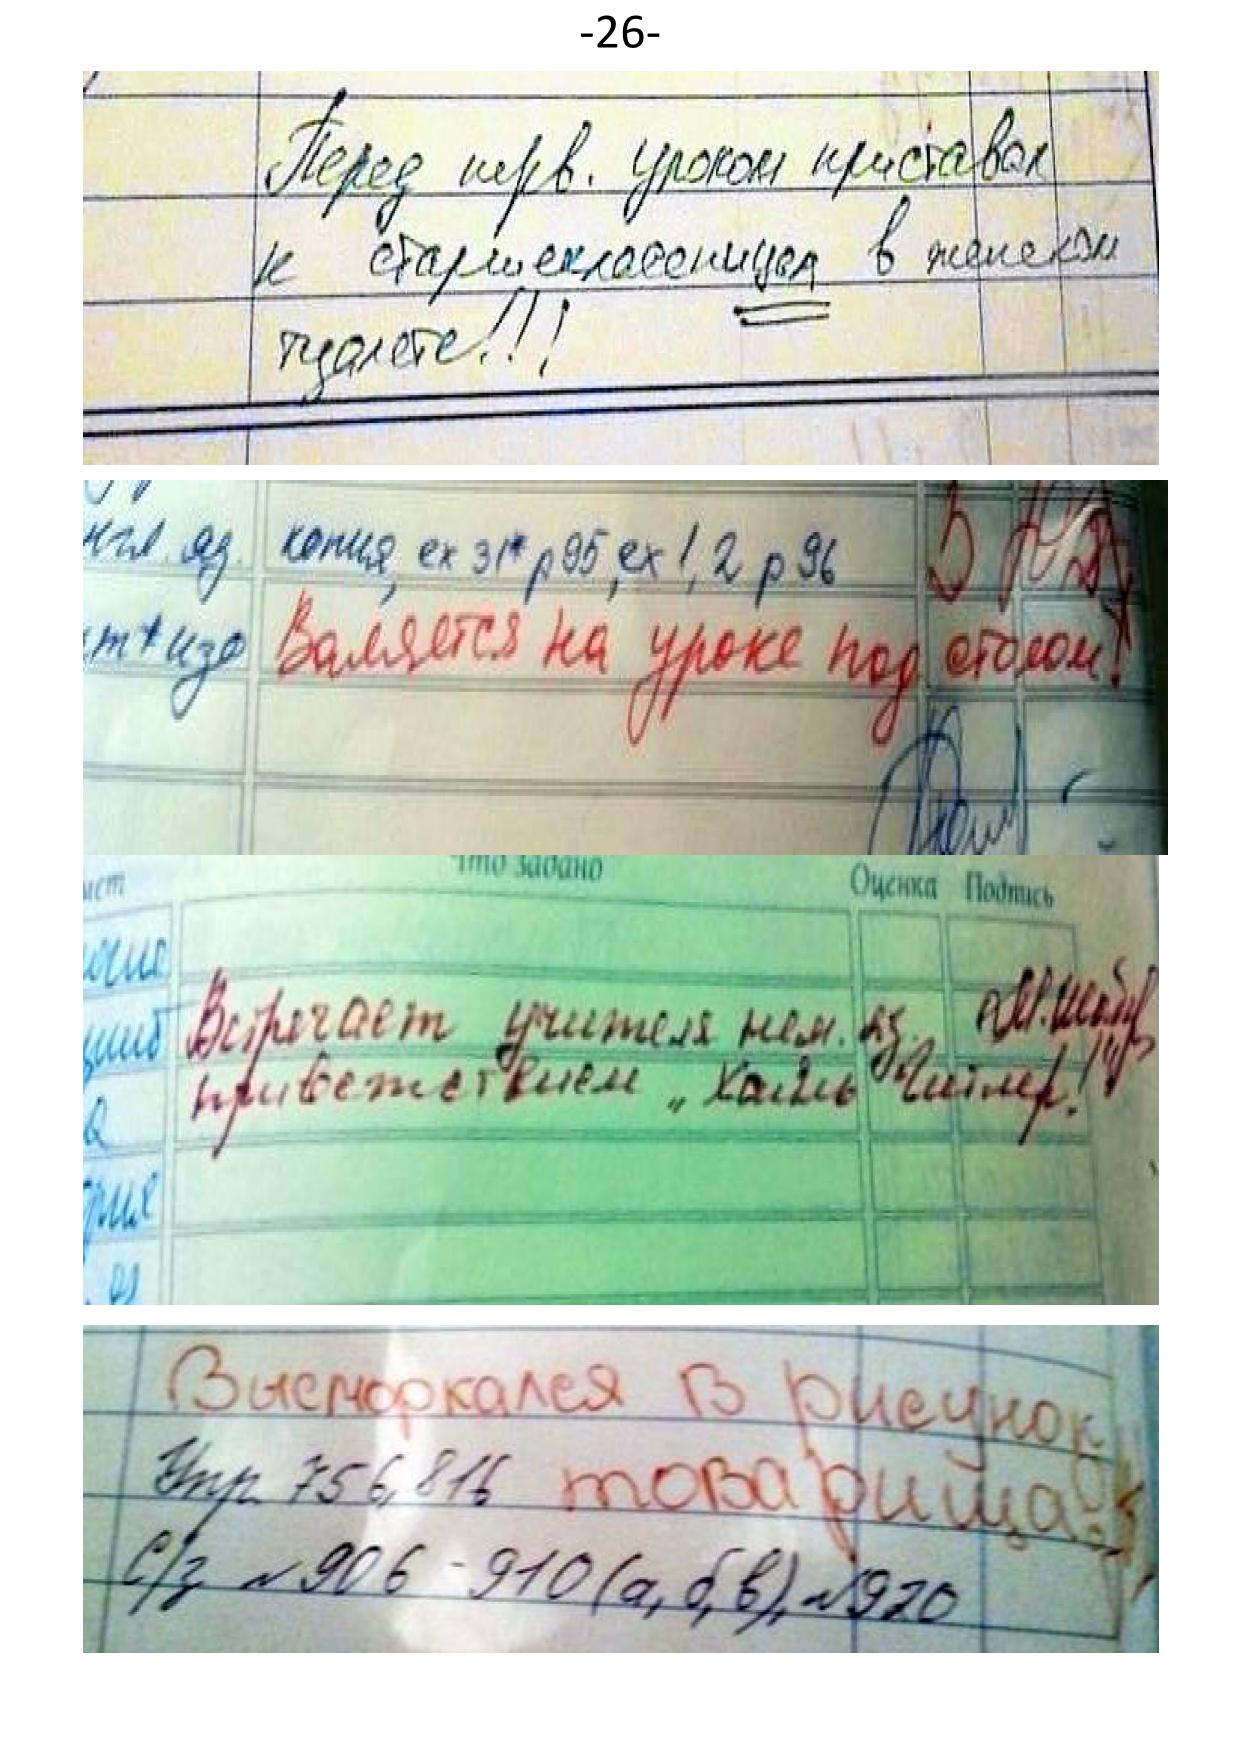 -26-
Перед перв. уроком приставал
к старшеклассницам в женском
туалете!!!
нгл. яз. копия, ex 31* p 95, ex 1, 2 p 96
ст + изо Валяется на уроке под столом!
Что задано Оценка Подпись
Встречает учителя нем. яз.
приветствием „Хайль Гитлер!"
Высморкался в рисунок
Упр 756, 816 товарища
С/з №906-910(а,б,в), №920